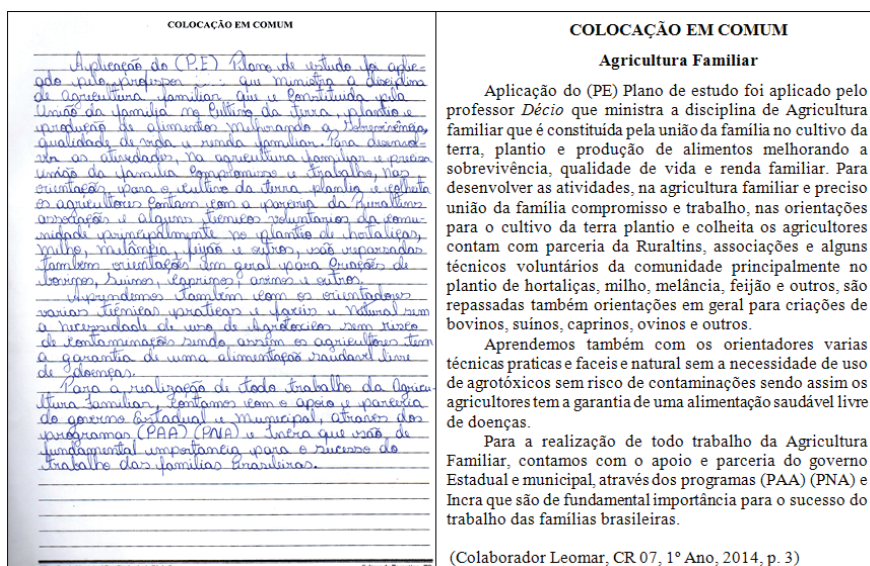 COLOCAÇÃO EM COMUM
Aplicação do (P.E) Plano de estudo foi aplic-
ado pelo professor que ministra a disciplina
de agricultura familiar que e Constituida pela
União da familia no Cultivo da terra, plantio e
produção de alimentos melhorando a Sobrevivência,
qualidade de vida e renda familiar. Para desenvol-
ver as atividades, na agricultura familiar e preciso
união da familia Compromisso e trabalho, nas
orientações para o cultivo da terra plantio e colheita
os agricultores Contam com a parceria da Ruraltins
associações e alguns técnicos voluntarios da comu-
nidade principalmente no plantio de hortaliças,
milho, melância, feijão e outros, são repassadas
também orientações em geral para Criações de
bovinos, Suinos, Caprinos, ovinos e outros.
Aprendemos também com os orientadores
varias técnicas praticas e faceis e natural sem
a necessidade de uso de Agrotoxicos sem risco
de contaminações sendo assim os agricultores tem
a garantia de uma alimentação saudável livre
de doenças.
Para a realização de todo trabalho da Agricu-
ltura Familiar, Contamos com o apoio e parceria
do governo Estadual e Municipal, atraves dos
programas (PAA) (PNA) e Incra que são de
fundamental importância para o sucesso do
trabalho das familias Brasileiras.
COLOCAÇÃO EM COMUM
Agricultura Familiar
Aplicação do (PE) Plano de estudo foi aplicado pelo
professor Décio que ministra a disciplina de Agricultura
familiar que é constituída pela união da família no cultivo da
terra, plantio e produção de alimentos melhorando a
sobrevivência, qualidade de vida e renda familiar. Para
desenvolver as atividades, na agricultura familiar e preciso
união da família compromisso e trabalho, nas orientações
para o cultivo da terra plantio e colheita os agricultores
contam com parceria da Ruraltins, associações e alguns
técnicos voluntários da comunidade principalmente no
plantio de hortaliças, milho, melância, feijão e outros, são
repassadas também orientações em geral para criações de
bovinos, suínos, caprinos, ovinos e outros.
Aprendemos também com os orientadores varias
técnicas praticas e faceis e natural sem a necessidade de uso
de agrotóxicos sem risco de contaminações sendo assim os
agricultores tem a garantia de uma alimentação saudável livre
de doenças.
Para a realização de todo trabalho da Agricultura
Familiar, contamos com o apoio e parceria do governo
Estadual e municipal, através dos programas (PAA) (PNA) e
Incra que são de fundamental importância para o sucesso do
trabalho das famílias brasileiras.
(Colaborador Leomar, CR 07, 1º Ano, 2014, p. 3)